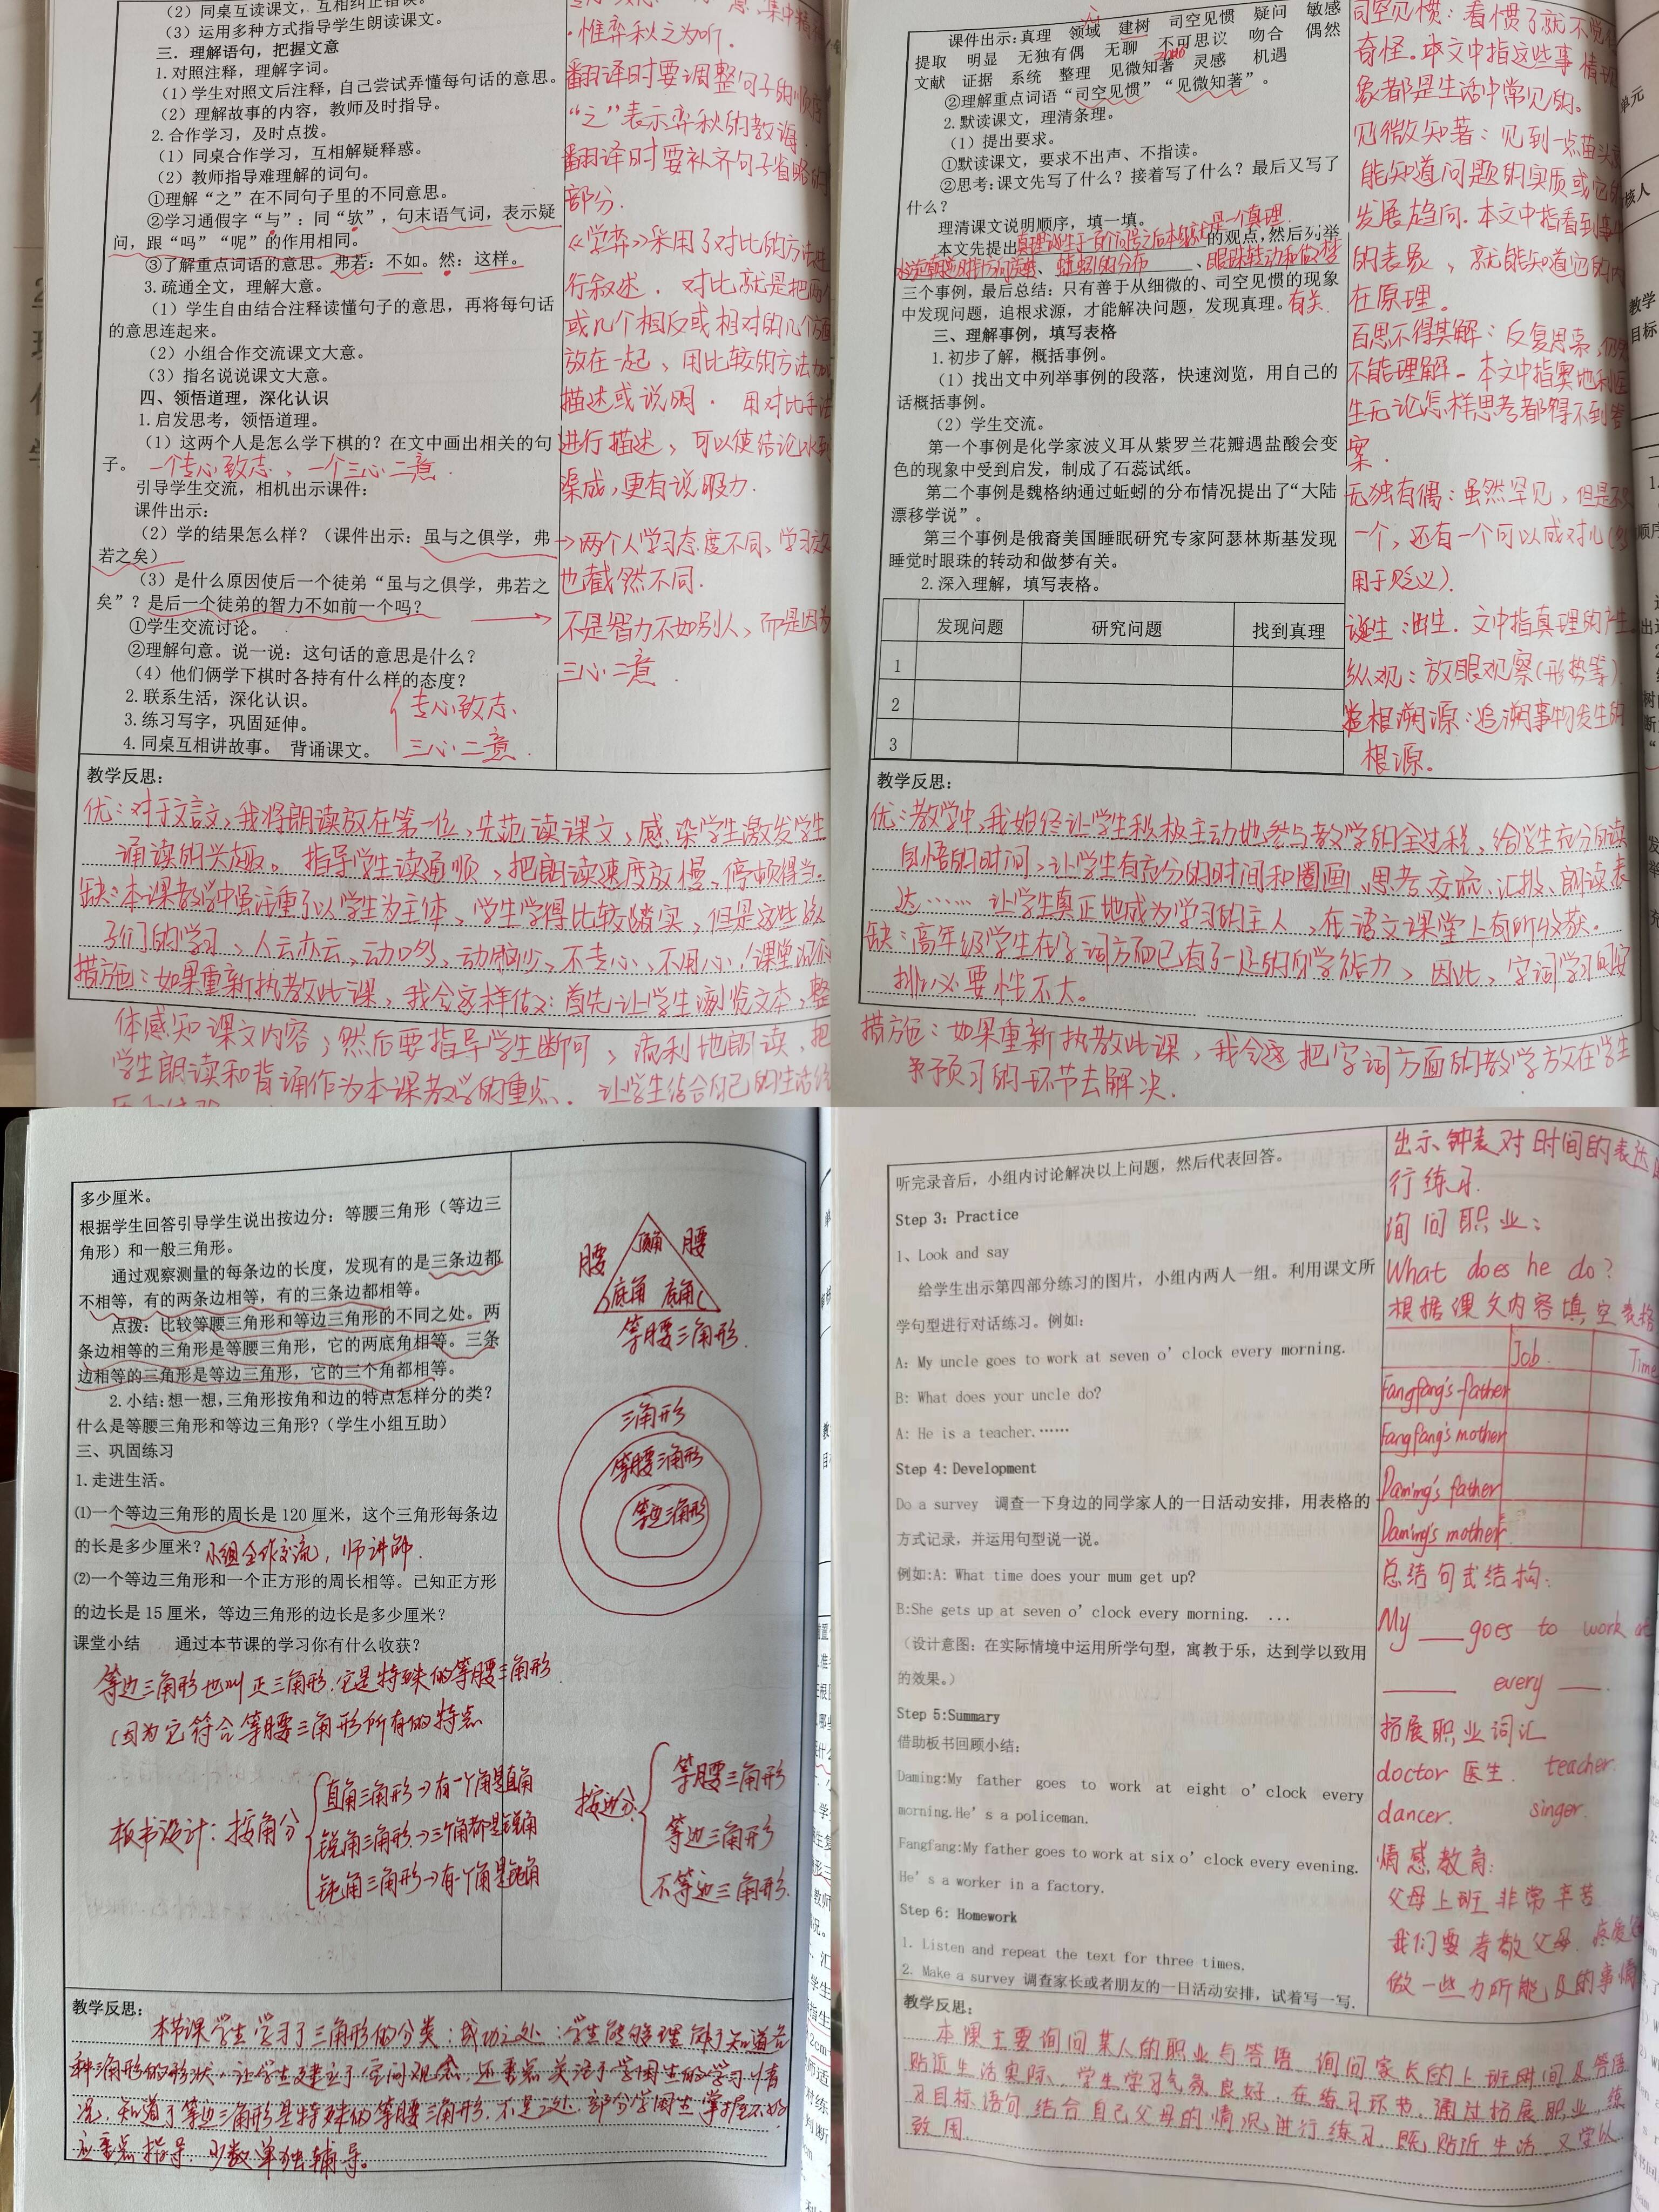 （2）同桌互读课文，互相纠正错误。
（3）运用多种方式指导学生朗读课文。
三．理解语句，把握文意
1.对照注释，理解字词。
（1）学生对照文后注释，自己尝试弄懂每句话的意思。
（2）理解故事的内容，教师及时指导。
2.合作学习，及时点拨。
（1）同桌合作学习，互相解疑释惑。
（2）教师指导难理解的词句。
①理解“之”在不同句子里的不同意思。
②学习通假字“与”：同“欤”，句末语气词，表示疑
问，跟“吗”“呢”的作用相同。
③了解重点词语的意思。弗若：不如。然：这样。
3.疏通全文，理解大意。
（1）学生自由结合注释读懂句子的意思，再将每句话
的意思连起来。
（2）小组合作交流课文大意。
（3）指名说说课文大意。
四、领悟道理，深化认识
1.启发思考，领悟道理。
（1）这两个人是怎么学下棋的？在文中画出相关的句
子。一个专心致志，一个三心二意．
引导学生交流，相机出示课件：
课件出示：
（2）学的结果怎么样？（课件出示：虽与之俱学，弗
若之矣）
（3）是什么原因使后一个徒弟“虽与之俱学，弗若之
矣”？是后一个徒弟的智力不如前一个吗？
①学生交流讨论。
②理解句意。说一说：这句话的意思是什么？
（4）他们俩学下棋时各持有什么样的态度？
2.联系生活，深化认识。
3.练习写字，巩固延伸。
4.同桌互相讲故事。背诵课文。
专心致志．
三心二意．
·惟弈秋之为听．
翻译时要调整句子的顺序
“之”表示弈秋的教诲
翻译时要补齐句子省略的
部分．
《学弈》采用了对比的方法进
行叙述．对比就是把两个
或几个相反或相对的几个方面
放在一起，用比较的方法加以
描述或说明．用对比手法
进行描述，可以使结论水到
渠成，更有说服力．
→两个人学习态度不同，学习效果
也截然不同．
不是智力不如别人，而是因为
三心二意．
教学反思：
优：对于文言文，我将朗读放在第一位，先范读课文，感染学生激发学生
诵读的兴趣。指导学生读通顺，把朗读速度放慢，停顿得当。
缺：本课教学中虽注重了以学生为主体，学生学得比较踏实，但是这些孩
子们的学习，人云亦云，动口多，动脑少，不专心，不用心，课堂
措施：如果重新执教此课，我会这样做：首先让学生浏览文本，整
体感知课文内容；然后要指导学生断句，流利地朗读，把
学生朗读和背诵作为本课教学的重点．让学生结合自己的生活
课件出示：真理 领域 建树 司空见惯 疑问 敏感
提取 明显 无独有偶 无聊 不可思议 吻合 偶然
文献 证据 系统 整理 见微知著 灵感 机遇
②理解重点词语“司空见惯”“见微知著”。
2.默读课文，理清条理。
（1）提出要求。
①默读课文，要求不出声、不指读。
②思考：课文先写了什么？接着写了什么？最后又写了
什么？
理清课文说明顺序，填一填。
本文先提出真理诞生于一百个问号之后本身就是一个真理的观点，然后列举
、蚯蚓的分布、眼珠转动和做梦
三个事例，最后总结：只有善于从细微的、司空见惯的现象
中发现问题，追根求源，才能解决问题，发现真理。有关．
三、理解事例，填写表格
1.初步了解，概括事例。
（1）找出文中列举事例的段落，快速浏览，用自己的
话概括事例。
（2）学生交流。
第一个事例是化学家波义耳从紫罗兰花瓣遇盐酸会变
色的现象中受到启发，制成了石蕊试纸。
第二个事例是魏格纳通过蚯蚓的分布情况提出了“大陆
漂移学说”。
第三个事例是俄裔美国睡眠研究专家阿瑟林斯基发现
睡觉时眼珠的转动和做梦有关。
2.深入理解，填写表格。
发现问题 研究问题 找到真理
1
2
3
司空见惯：看惯了就不觉得
奇怪。本文中指这些事情现
象都是生活中常见的。
见微知著：见到一点苗头就
能知道问题的实质或它的
发展趋向．本文中指看到事物
的表象，就能知道它的内
在原理。
百思不得其解：反复思索，仍然
不能理解．本文中指奥地利医
生无论怎样思考都得不到答
案．
无独有偶：虽然罕见，但是不只
一个，还有一个可以成对儿（多
用于贬义）．
诞生：出生．文中指真理的产生
纵观：放眼观察（形势等）
追根溯源：追溯事物发生的
根源。
教学反思：
优：教学中，我始终让学生积极主动地参与教学的全过程，给学生充分的读
自悟的时间，让学生有充分的时间和圈画、思考、交流、汇报、朗读表
达……让学生真正地成为学习的主人，在语文课堂上有所收获．
缺：高年级学生在字词方面已有了一定的自学能力，因此，字词学习
排必要性不大。
措施：如果重新执教此课，我会这把字词方面的教学放在学生
预习的环节去解决．
多少厘米。
根据学生回答引导学生说出按边分：等腰三角形（等边三
角形）和一般三角形。
通过观察测量的每条边的长度，发现有的是三条边都
不相等，有的两条边相等，有的三条边都相等。
点拨：比较等腰三角形和等边三角形的不同之处。两
条边相等的三角形是等腰三角形，它的两底角相等。三条
边相等的三角形是等边三角形，它的三个角都相等。
2.小结：想一想，三角形按角和边的特点怎样分的类？
什么是等腰三角形和等边三角形？（学生小组互助）
三、巩固练习
1.走进生活。
⑴一个等边三角形的周长是120厘米，这个三角形每条边
的长是多少厘米？小组合作交流，师讲解．
⑵一个等边三角形和一个正方形的周长相等。已知正方形
的边长是15厘米，等边三角形的边长是多少厘米？
课堂小结 通过本节课的学习你有什么收获？
等边三角形也叫正三角形．它是特殊的等腰三角形
（因为它符合等腰三角形所有的特点
板书设计：按角分
直角三角形→有一个角是直角
锐角三角形→三个角都是锐角
钝角三角形→有一个角是钝角
按边分
等腰三角形
等边三角形
不等边三角形．
腰 顶角 腰
底角 底角
等腰三角形．
三角形
等腰三角形
等边三角形
教学反思：
本节课学生学习了三角形的分类：成功之处：学生能够理解知道各
种三角形的形状，让学生建立了空间观念，还重点关注了学困生的学习情
况，知道了等边三角形是特殊的等腰三角形．不足之处：部分学困生掌握不好
应重点指导，少数单独辅导。
听完录音后，小组内讨论解决以上问题，然后代表回答。
Step 3: Practice
1、Look and say
给学生出示第四部分练习的图片，小组内两人一组。利用课文所
学句型进行对话练习。例如：
A: My uncle goes to work at seven o’clock every morning.
B: What does your uncle do?
A: He is a teacher.……
Step 4: Development
Do a survey 调查一下身边的同学家人的一日活动安排，用表格的
方式记录，并运用句型说一说。
例如:A: What time does your mum get up?
B:She gets up at seven o’clock every morning. ...
（设计意图：在实际情境中运用所学句型，寓教于乐，达到学以致用
的效果。）
Step 5:Summary
借助板书回顾小结：
Daming:My father goes to work at eight o’clock every
morning.He’s a policeman.
Fangfang:My father goes to work at six o’clock every evening.
He’s a worker in a factory.
Step 6: Homework
1. Listen and repeat the text for three times.
2. Make a survey 调查家长或者朋友的一日活动安排，试着写一写.
出示钟表对时间的表达
行练习．
询问职业：
What does he do?
根据课文内容填空表格
Job. Time
Fangfang's father
Fangfang's mother
Daming's father
Daming's mother
总结句式结构：
My ___ goes to work at
___ every ___.
拓展职业词汇
doctor 医生. teacher.
dancer. singer.
情感教育：
父母上班非常辛苦
我们要孝敬父母．疼爱
做一些力所能及的事情
教学反思：
本课主要询问某人的职业与答语．询问家长的上班时间及答语
贴近生活实际，学生学习气氛良好．在练习环节，通过拓展职业，练
习目标语句结合自己父母的情况进行练习．既贴近生活，又学以
致用．